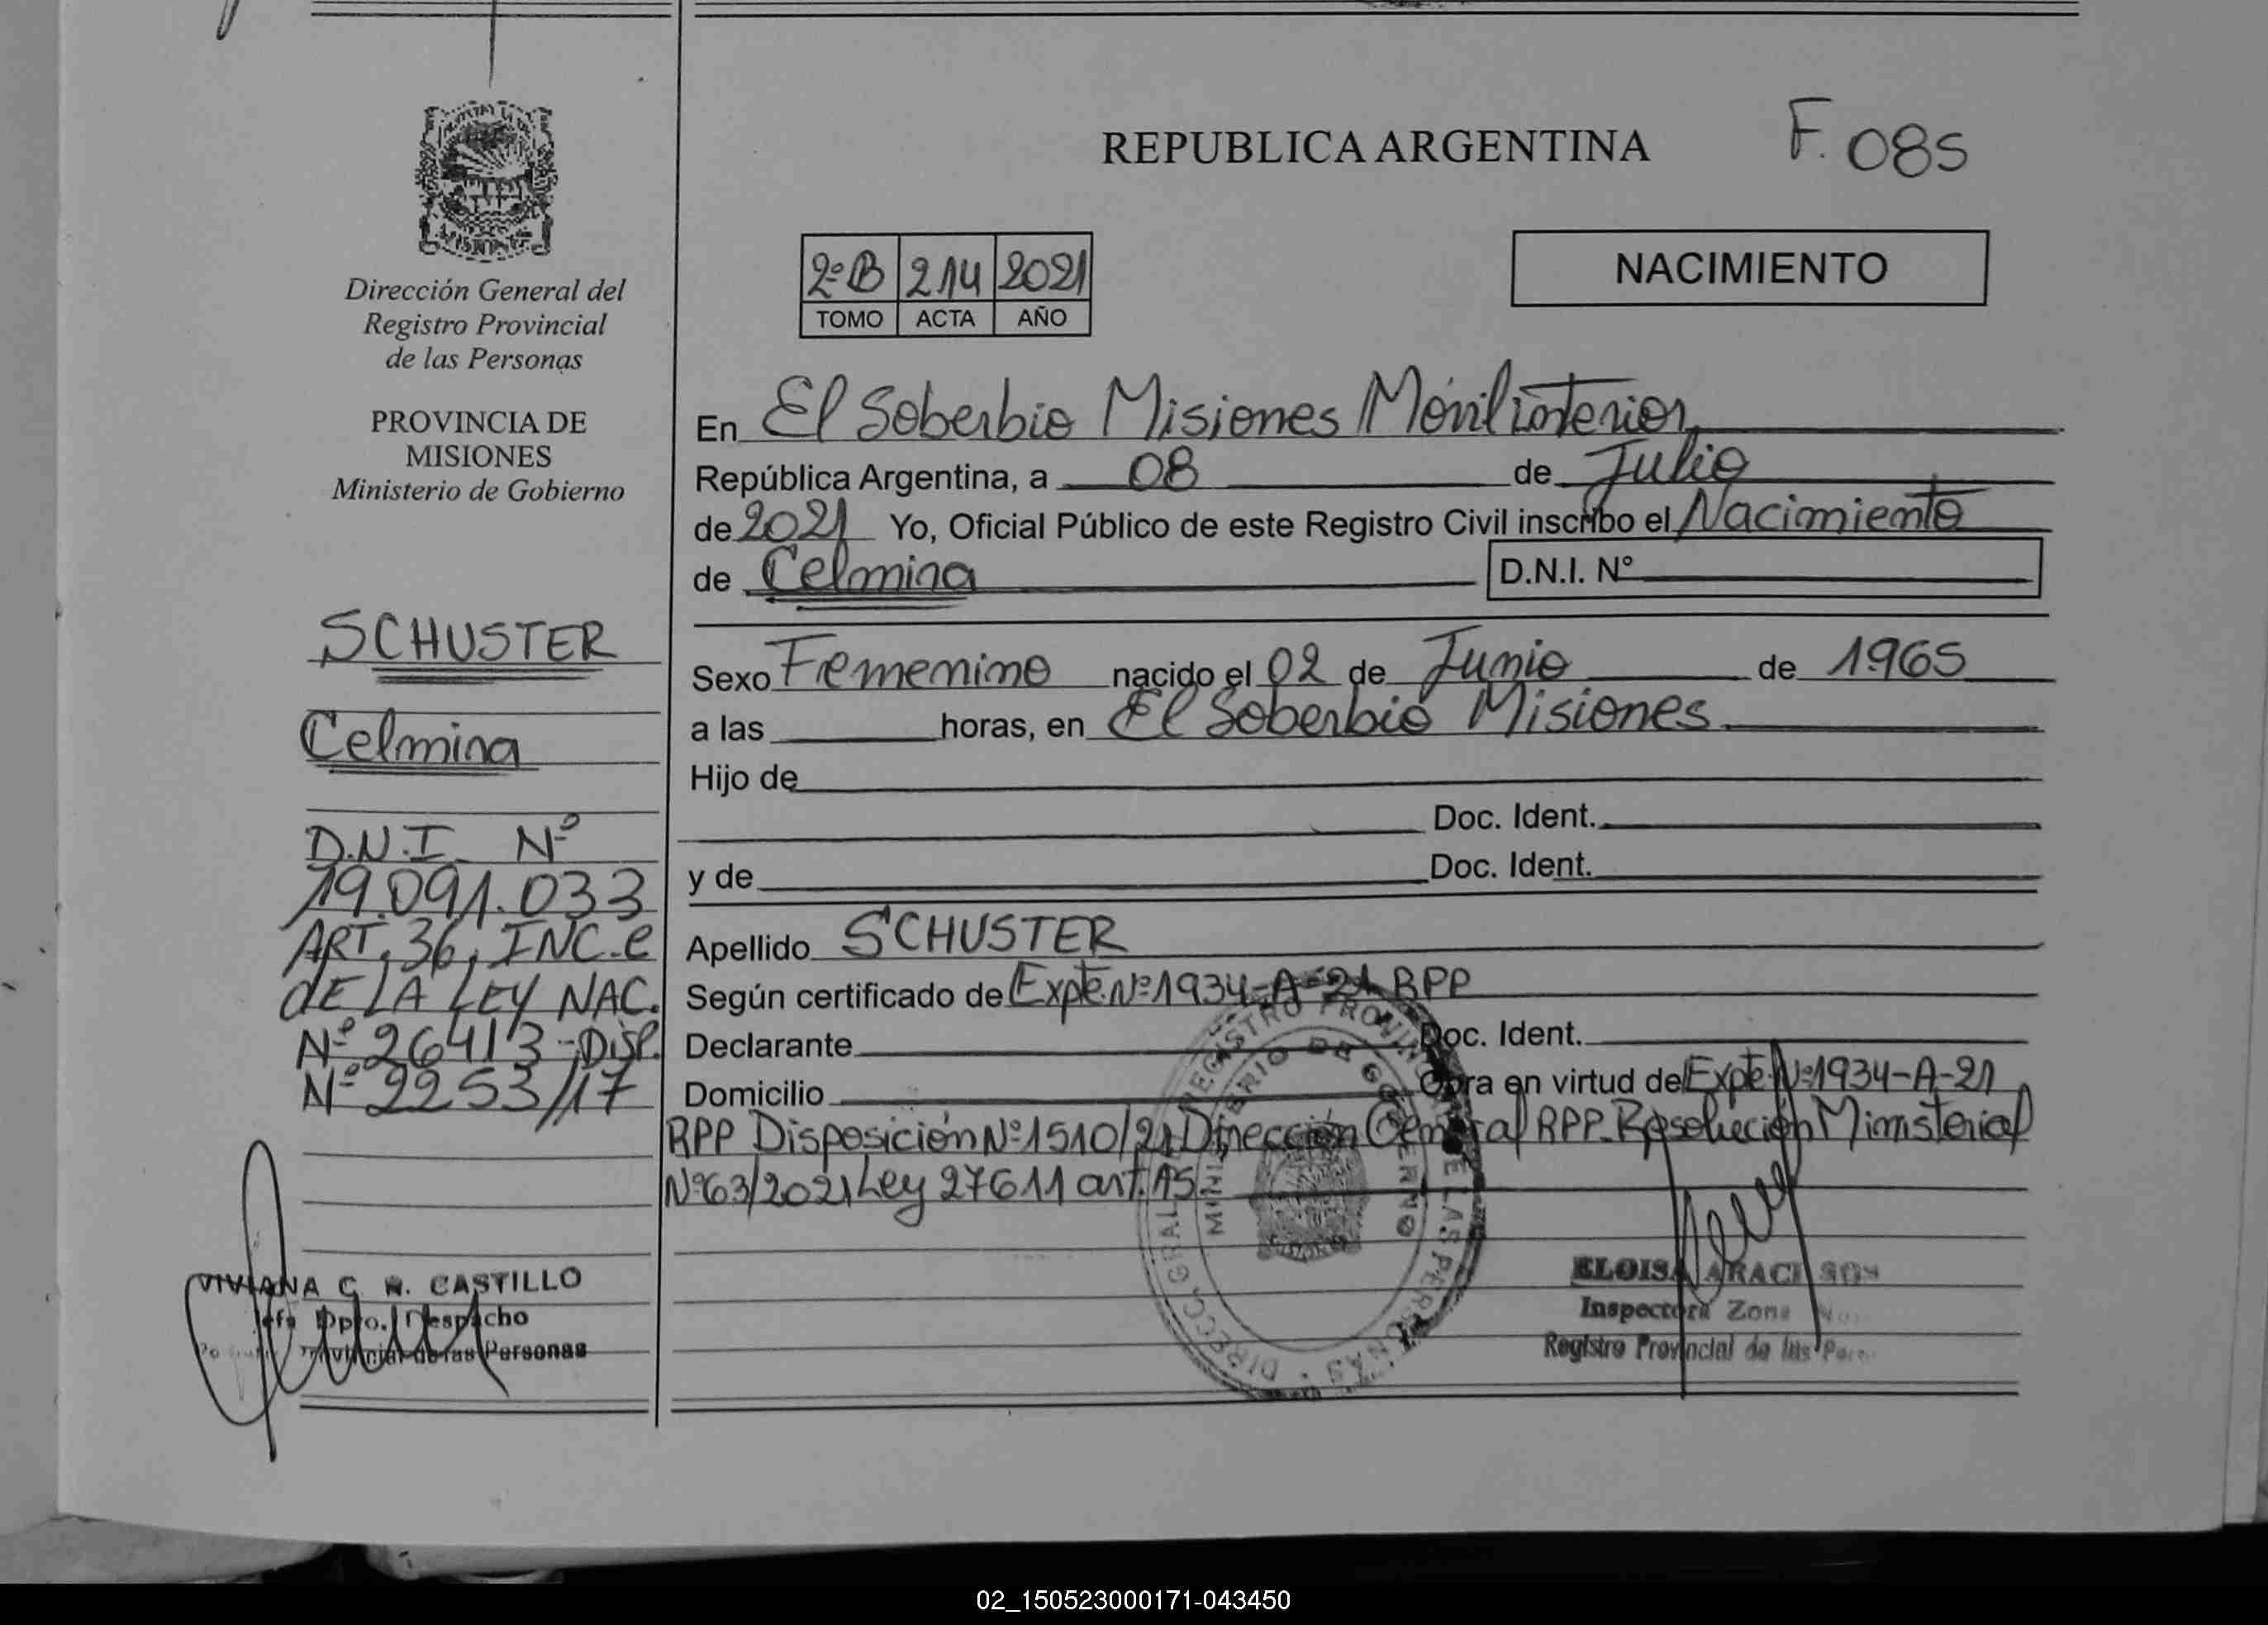 REPUBLICA ARGENTINA
F. 085
Dirección General del
Registro Provincial
de las Personas
PROVINCIA DE
MISIONES
Ministerio de Gobierno
2º B 214 2021
TOMO ACTA AÑO
NACIMIENTO
En El Soberbio Misiones Móvil interior
República Argentina, a 08 de Julio
de 2021 Yo, Oficial Público de este Registro Civil inscribo el Nacimiento
de Celmira D.N.I. Nº
Sexo Femenino nacido el 02 de Junio de 1965
a las horas, en El Soberbio Misiones
Hijo de
Doc. Ident.
y de Doc. Ident.
Apellido SCHUSTER
Según certificado de Expte. Nº 1934-A-21 RPP
Declarante Doc. Ident.
Domicilio Obra en virtud de Expte Nº 1934-A-21
RPP Disposición Nº 1510/21 Dirección General RPP. Resolución Ministerial
Nº 63/2021 Ley 27611 art. 15
SCHUSTER
Celmira
D.N.I. Nº
19.091.033
ART. 36, INC. e
dE LA LEY NAC.
Nº 26413 - DISP.
Nº 2253/17
VIVIANA C. CASTILLO
Jefa Dpto. Despacho
Provincial de las Personas
DIRECC. GRAL. REGISTRO PROVINCIAL DE LAS PERSONAS
MINISTERIO DE GOBIERNO
ELOISA ARACI
Inspectora Zona
Registro Provincial de las
02_150523000171-043450